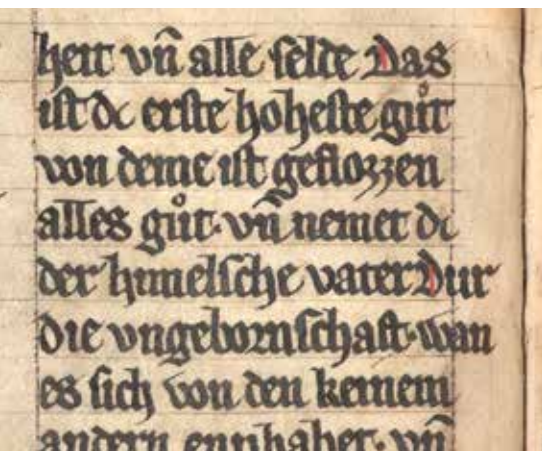 heit vn̄ alle selde Das
ist dc erste hoheste gůt
von deme ist geflozzen
alles gůt· vn̄ nemet dc
der himelsche vater Dur
die vngebornschaft· wan
es sich von den keinem
andern enphahet· vn̄